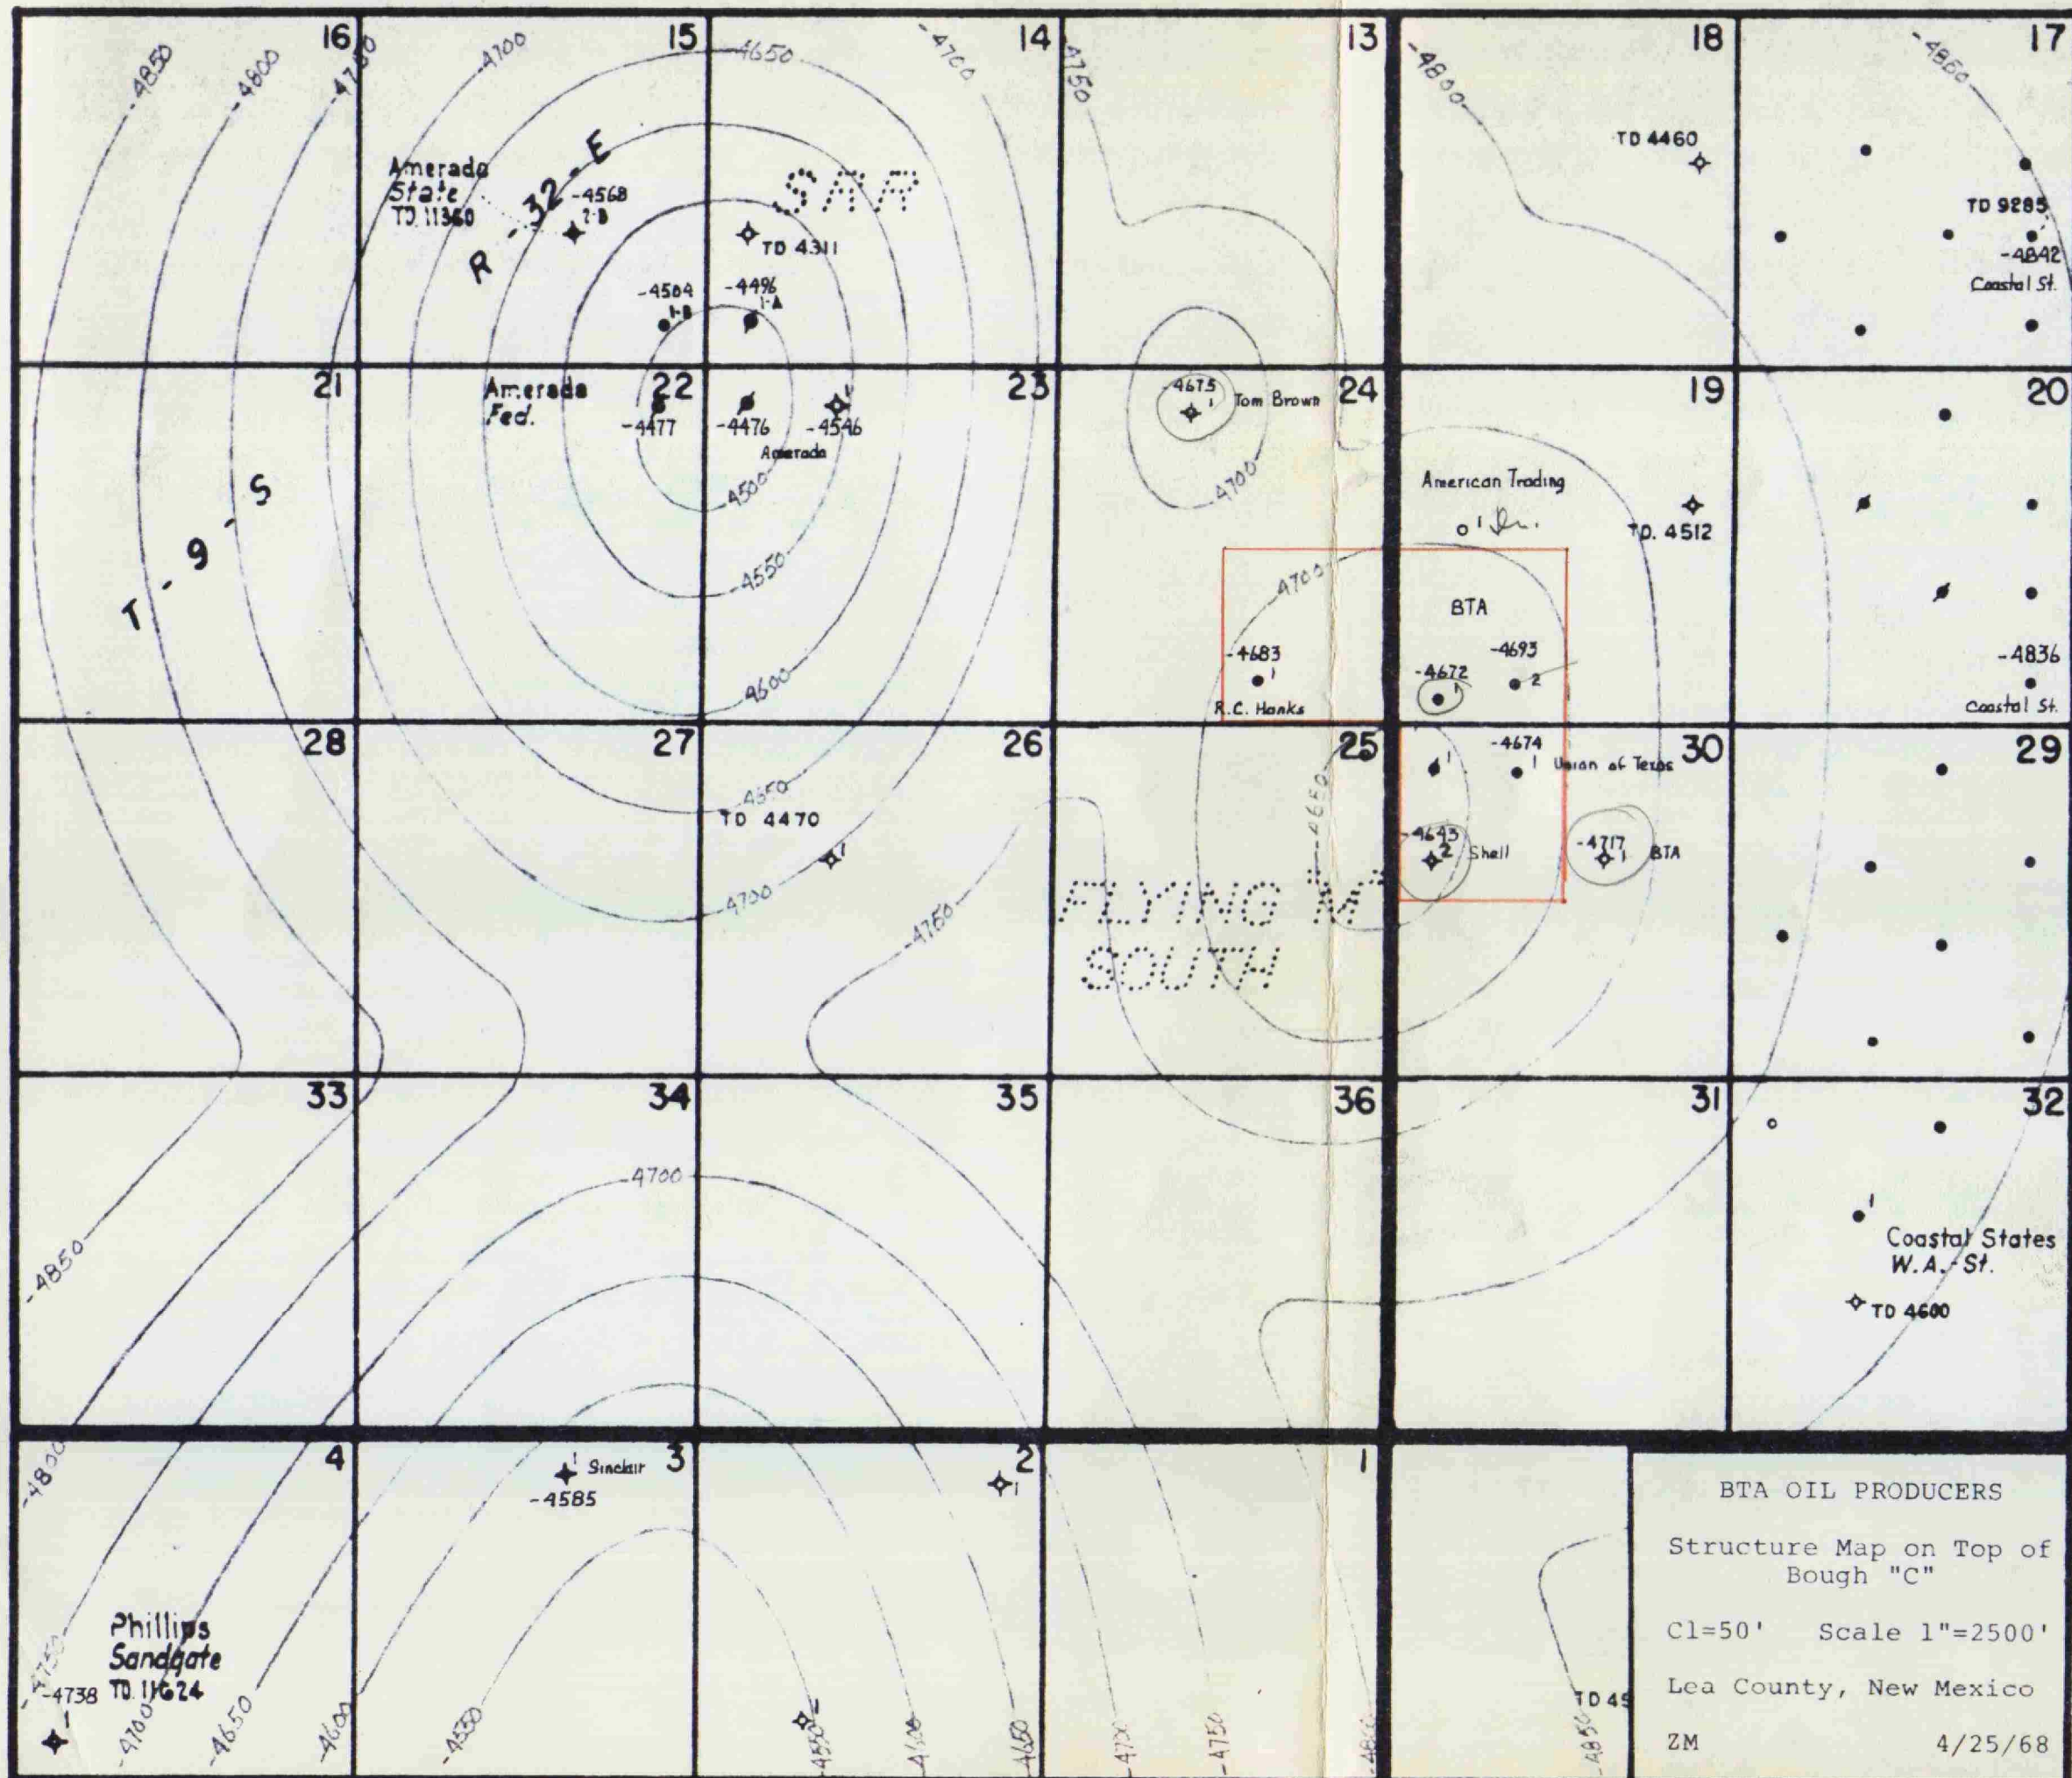 16
15
14
13
18
17
-4850
-4800
-4750
-4700
-4650
-4700
-4750
-4800
-4850
Amerada
State
TD. 11360
R - 32 - E
-4568
2-B
SAR
TD 4311
-4504
1-B
-4496
1-A
TD 4460
TD 9285
-4842
Coastal St.
21
22
23
24
19
20
Amerada
Fed.
-4477
-4476
-4546
Amerada
-4500
-4550
-4600
-4675
1
Tom Brown
-4700
T - 9 - S
American Trading
1
TD. 4512
-4700
BTA
-4683
1
R.C. Hanks
-4672
1
-4693
2
-4836
Coastal St.
28
27
26
25
30
29
-4650
TD 4470
1
-4700
-4750
-4650
1
-4674
1
Union of Texas
-4643
2
Shell
-4717
1
BTA
FLYING "M"
SOUTH
33
34
35
36
31
32
-4850
-4700
1
Coastal States
W.A.-St.
TD 4600
4
3
2
1
-4800
1
Sinclair
-4585
1
Phillips
Sandgate
TD. 11624
-4738
-4750
-4700
-4650
-4600
-4550
-4550
-4600
-4650
-4700
-4750
-4800
-4850
TD 45
BTA OIL PRODUCERS
Structure Map on Top of
Bough "C"
CI=50' Scale 1"=2500'
Lea County, New Mexico
ZM 4/25/68